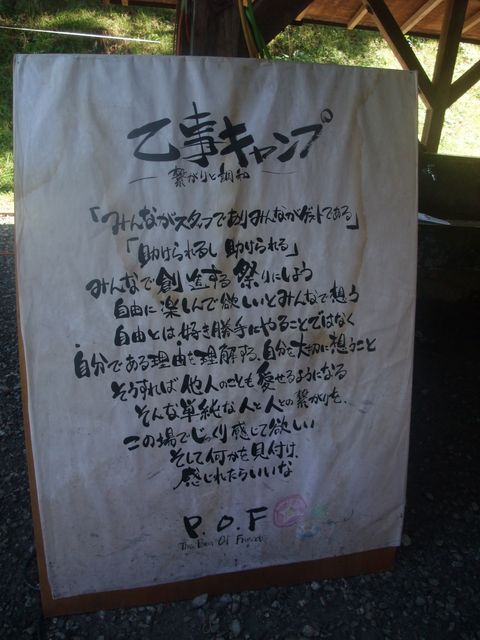 乙事キャンプ
繋がりと調和
「みんながスタッフでありみんながゲストである」
「助けられるし助けられる」
みんなで創造する祭りにしよう
自由に楽しんで欲しいとみんなで想う
自由とは好き勝手にやることではなく
自分である理由を理解する、自分を大切に想うこと
そうすれば他人のことも愛せるようになる
そんな単純な人と人との繋がりを、
この場でじっくり感じて欲しい
そして何かを見付け、
感じれたらいいな
P.O.F
Of